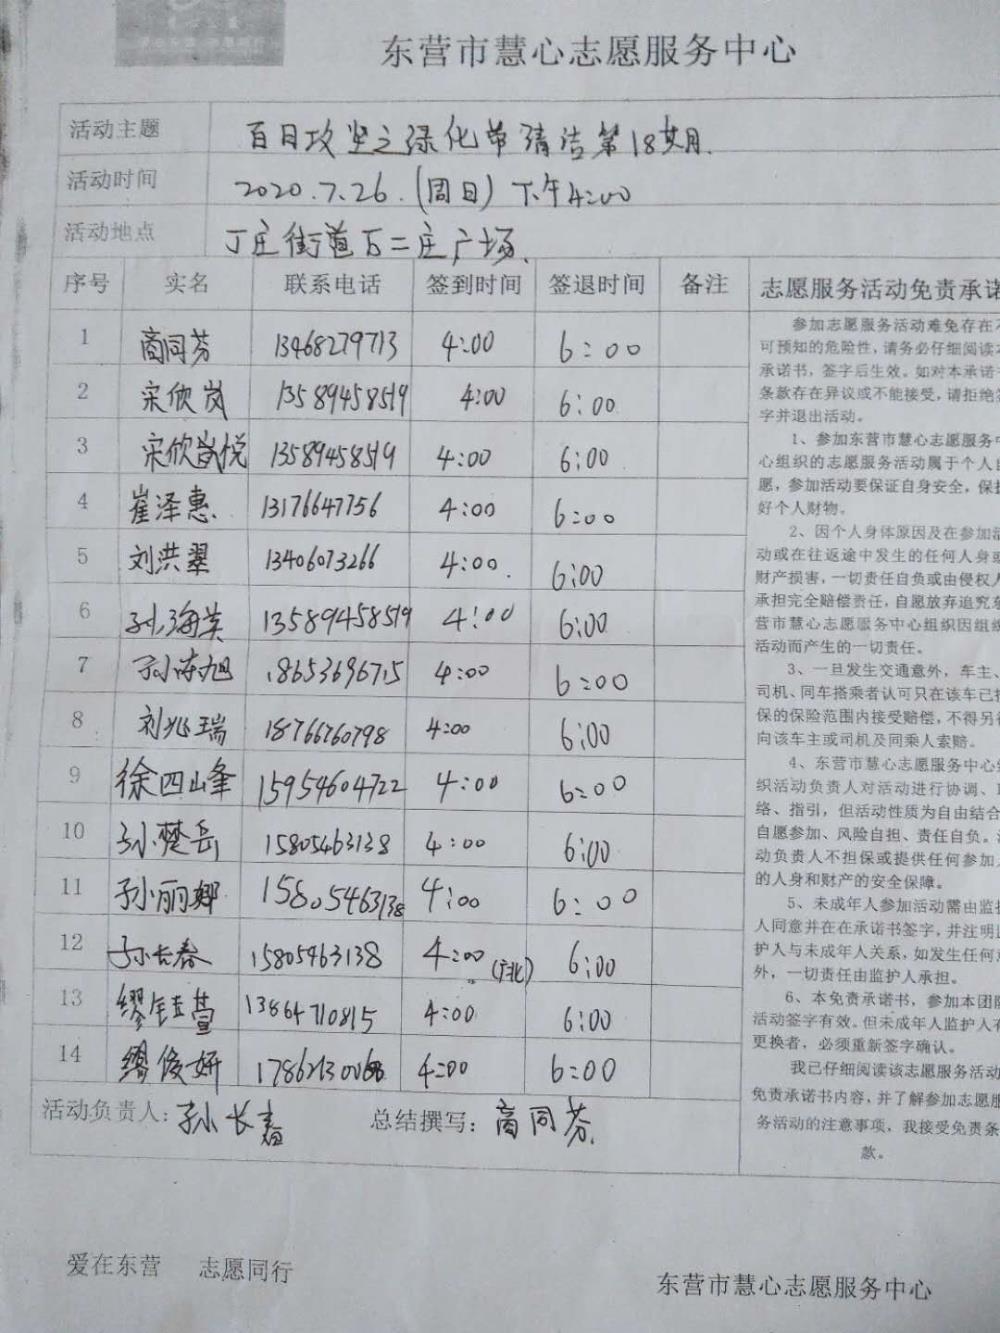 东营市慧心志愿服务中心
活动主题 百日攻坚之绿化带清洁第18期.
活动时间 2020.7.26.(周日) 下午4:00
活动地点 丁庄街道万二庄广场.
序号 实名 联系电话 签到时间 签退时间 备注
1 商同芬 13468279713 4:00 6:00
2 宋欣岚 13589458519 4:00 6:00
3 宋欣悦 13589458519 4:00 6:00
4 崔泽惠. 13176647756 4:00 6:00
5 刘洪翠 13406073266 4:00. 6:00
6 孙海英 13589458519 4:00 6:00
7 孙涛旭 18653696715 4:00 6:00
8 刘兆瑞 18766760798 4:00 6:00
9 徐四峰 15954604722 4:00 6:00
10 孙楚岳 15805463138 4:00 6:00
11 孙丽娜 15805463138 4:00 6:00
12 孙长春 15805463138 4:00 6:00
13 缪萱 13864710815 4:00 6:00
14 缪俊妍 4:00 6:00
活动负责人:孙长春 总结撰写:商同芬.
志愿服务活动免责承诺
参加志愿服务活动难免存在
可预知的危险性,请务必仔细阅读
承诺书,签字后生效。如对本承诺
条款存在异议或不能接受,请拒绝
字并退出活动。
1、参加东营市慧心志愿服务中
心组织的志愿服务活动属于个人自
愿,参加活动要保证自身安全,保
好个人财物。
2、因个人身体原因及在参加活
动或在往返途中发生的任何人身或
财产损害,一切责任自负或由侵权人
承担完全赔偿责任,自愿放弃追究东
营市慧心志愿服务中心组织因组织
活动而产生的一切责任。
3、一旦发生交通意外,车主、
司机、同车搭乘者认可只在该车已
保的保险范围内接受赔偿,不得另
向该车主或司机及同乘人索赔。
4、东营市慧心志愿服务中心组
织活动负责人对活动进行协调、联
络、指引,但活动性质为自由结合
自愿参加、风险自担、责任自负。活
动负责人不担保或提供任何参加
的人身和财产的安全保障。
5、未成年人参加活动需由监护
人同意并在在承诺书签字,并注明监
护人与未成年人关系,如发生任何意
外,一切责任由监护人承担。
6、本免责承诺书,参加本团队
活动签字有效。但未成年人监护人有
更换者,必须重新签字确认。
我已仔细阅读该志愿服务活动
免责承诺书内容,并了解参加志愿服
务活动的注意事项,我接受免责条
款。
爱在东营 志愿同行
东营市慧心志愿服务中心